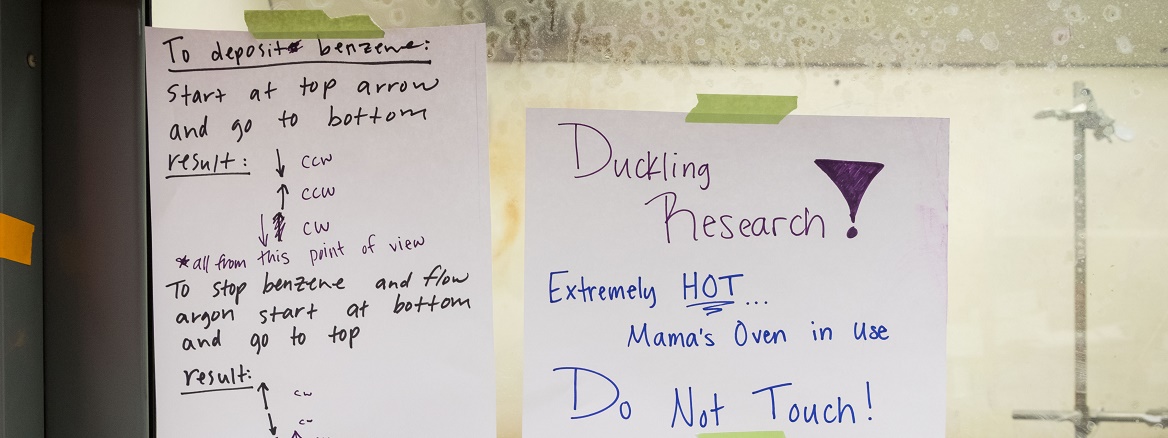 To deposit benzene:
start at top arrow
and go to bottom
result: ↓ ccw
↑ ccw
↓ cw
*all from this point of view
To stop benzene and flow
argon start at bottom
and go to top
result: ↑ cw
↓ cw
Duckling
Research!
Extremely HOT...
Mama's Oven in Use
Do Not Touch!